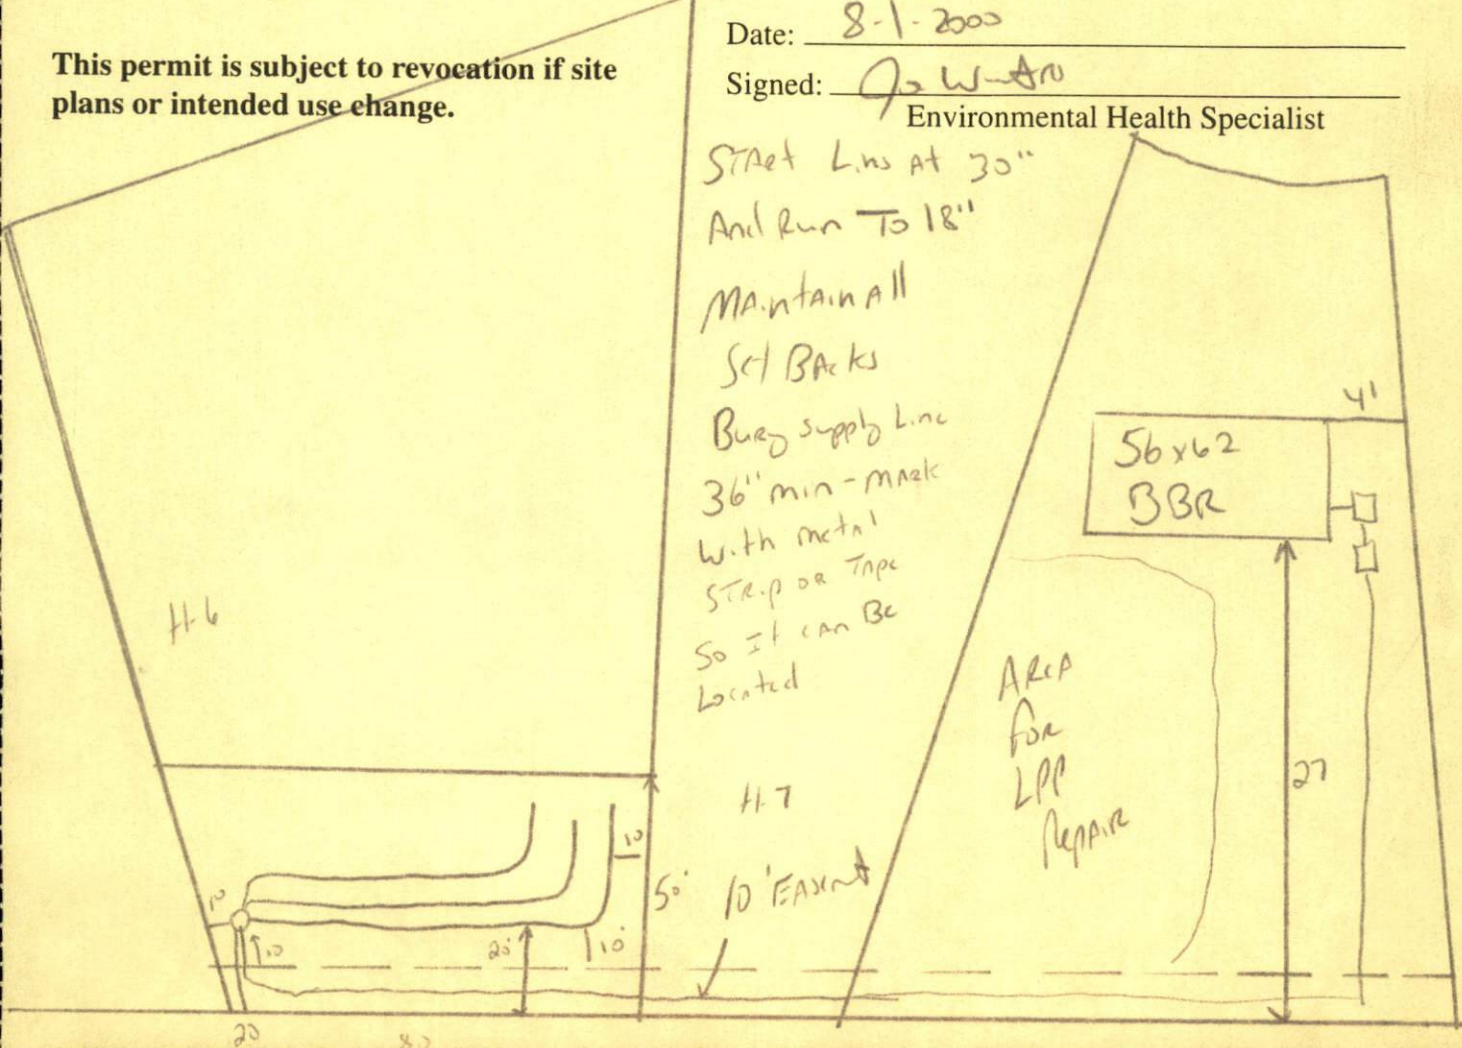 This permit is subject to revocation if site
plans or intended use change.
Date: 8-1-2000
Signed:
Environmental Health Specialist
START Lins At 30"
And Run To 18"
MAintain All
Set BAcks
Bury supply Line
36" min - mark
with metal
STRip or Tape
So It can Be
Located
H-6
H-7
4'
56x62
BBR
AreA
For
LPP
RepAiR
27
10
50'
10' Easmt
10
10
20'
10'
20
80